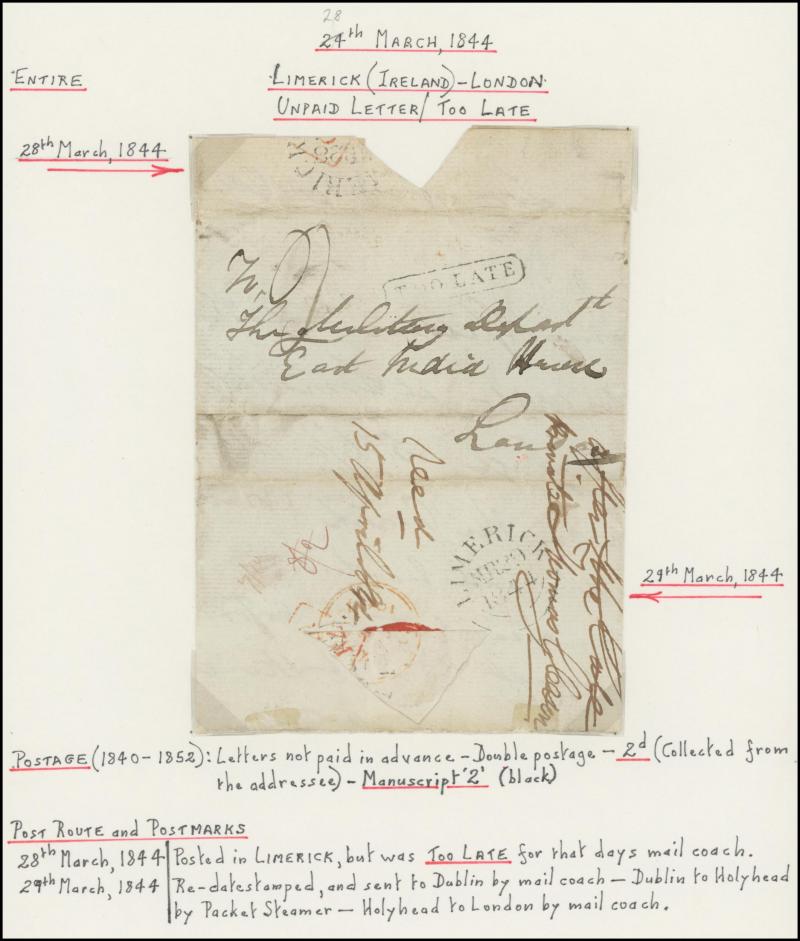 28
24th MARCH, 1844
ENTIRE
LIMERICK (IRELAND) - LONDON
UNPAID LETTER / TOO LATE
28th March, 1844
TOO LATE
To,
The Military Depart t
East India House
Recd
15 April
LIMERICK
1844
29th March, 1844
POSTAGE (1840-1852): Letters not paid in advance - Double postage - 2d (Collected from
the addressee) - Manuscript '2' (black)
POST ROUTE and POSTMARKS
28th March, 1844 Posted in LIMERICK, but was TOO LATE for that days mail coach.
29th March, 1844 Re-datestamped, and sent to Dublin by mail coach - Dublin to Holyhead
by Packet Steamer - Holyhead to London by mail coach.